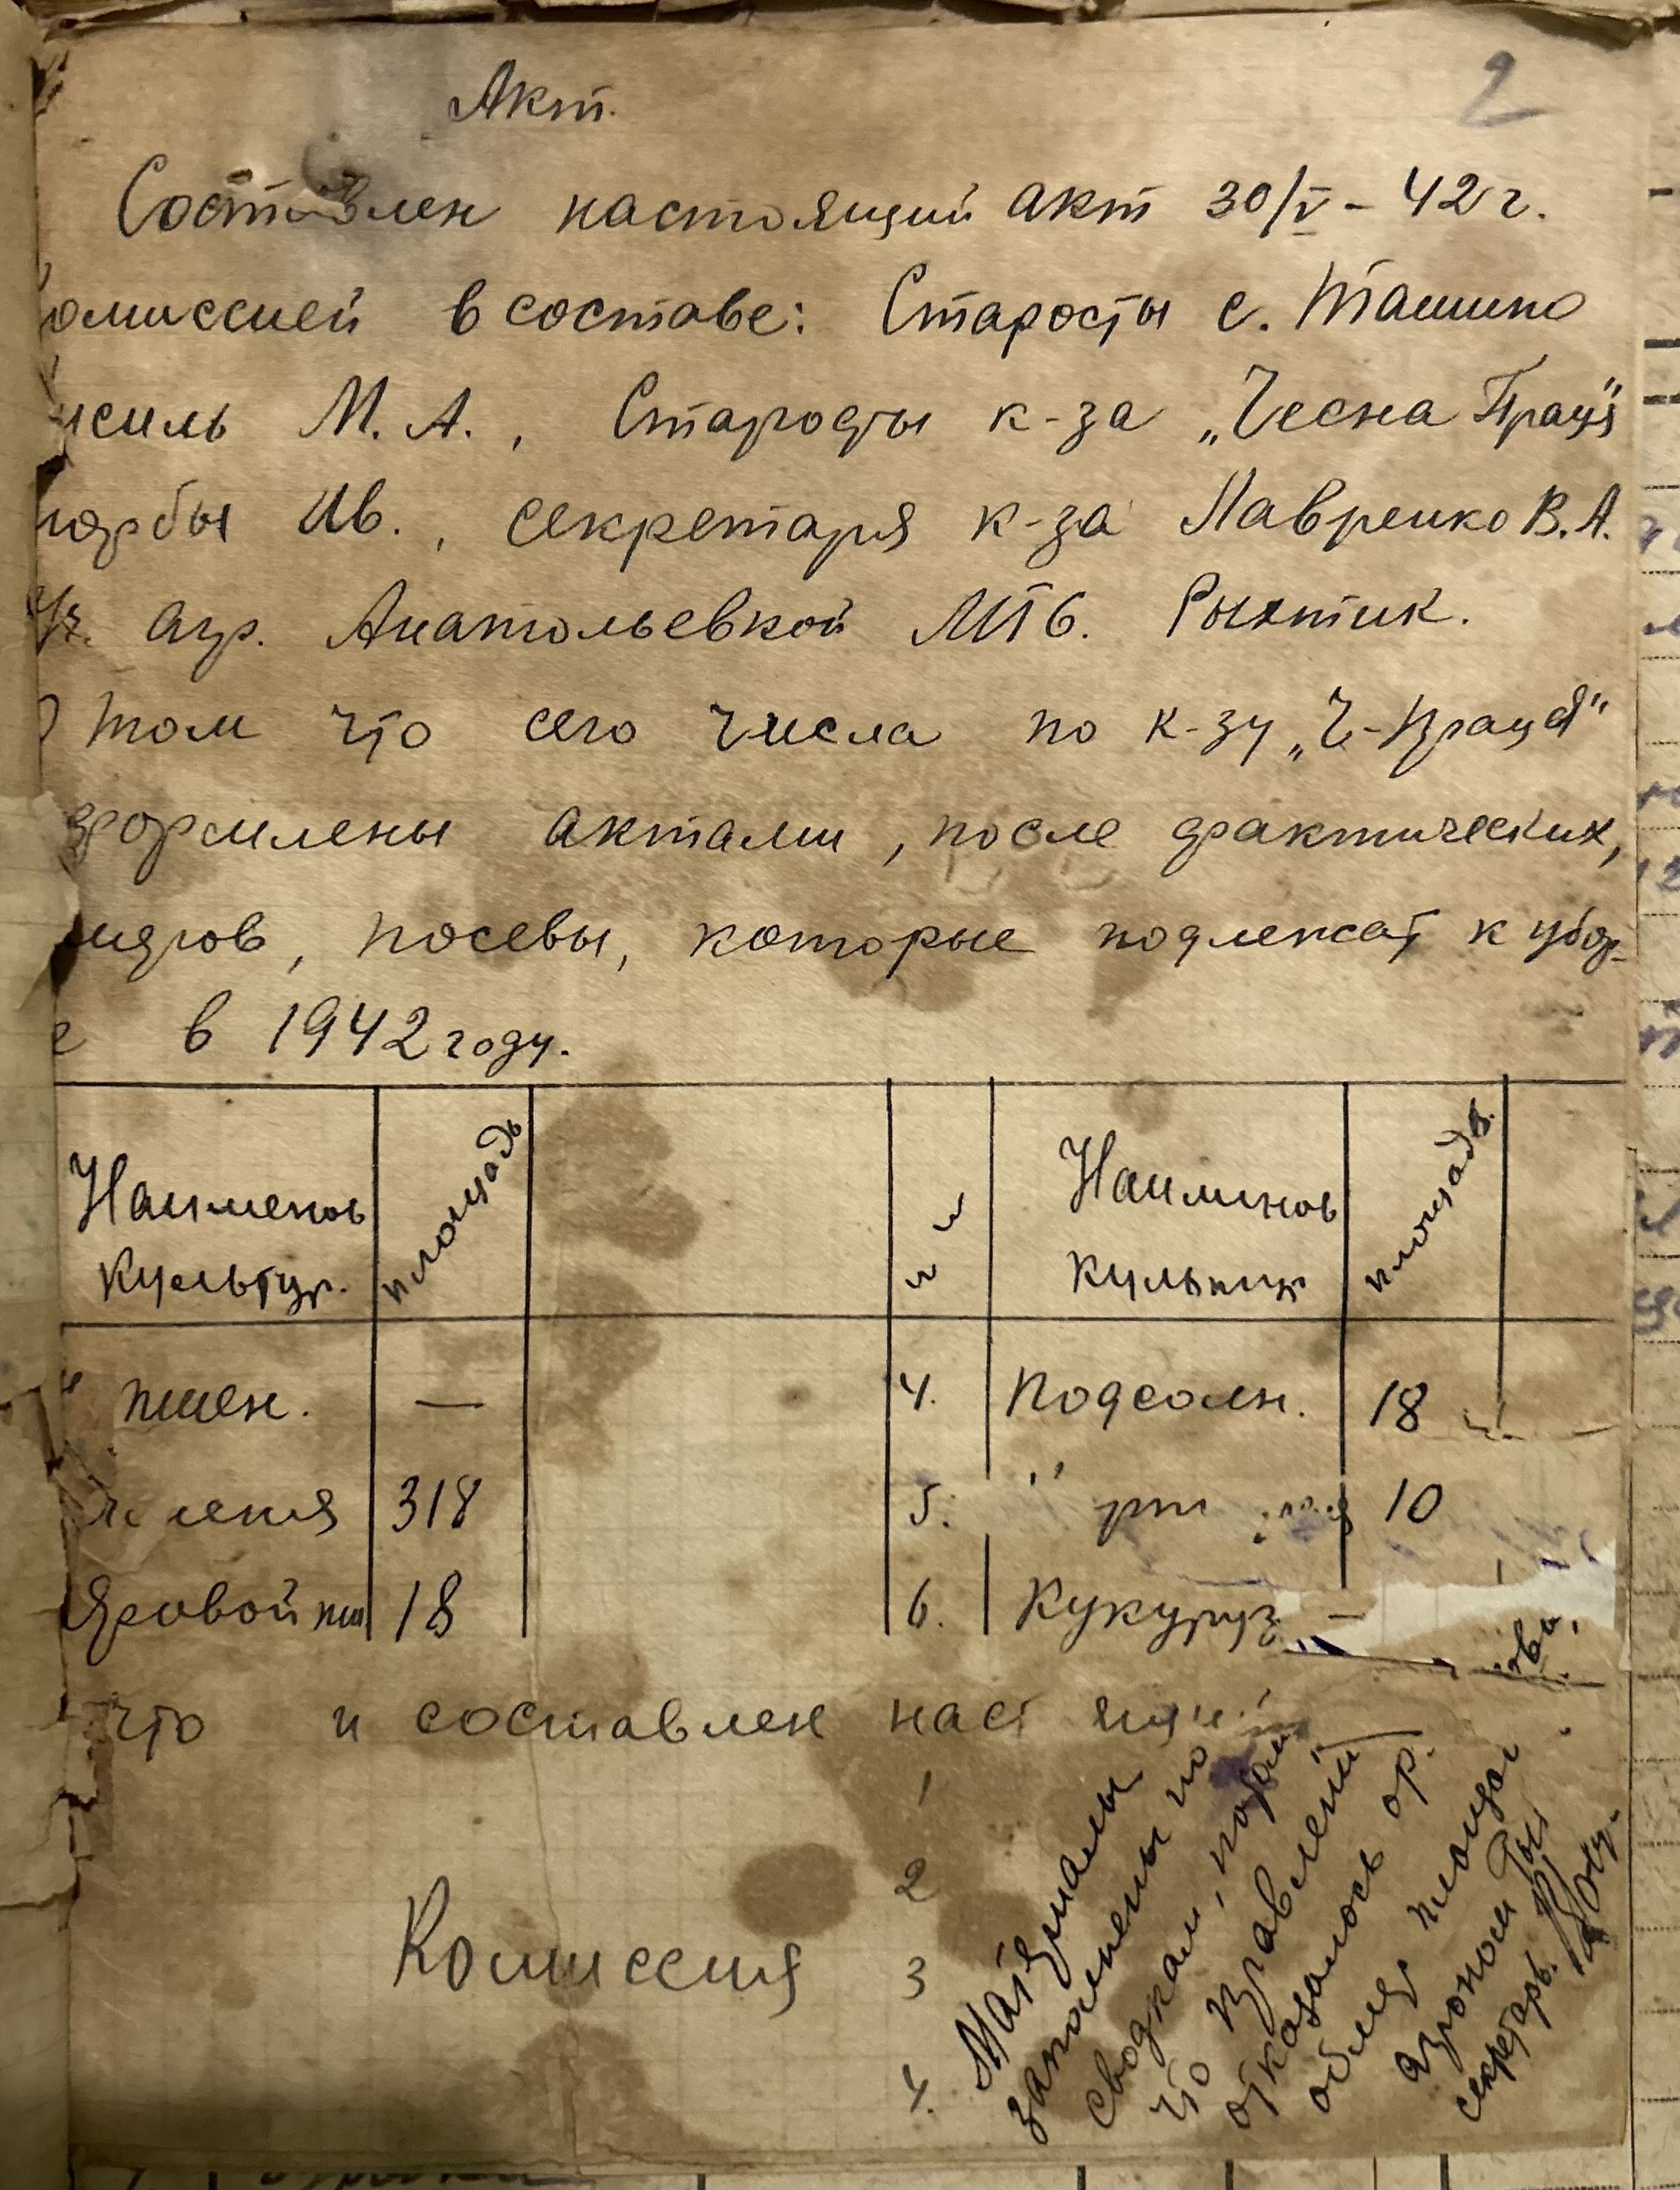 2
Акт.
Составлен настоящий акт 30/V - 42 г.
омиссией в составе: Старосты с. Ташино
исиль М. А., Старосты к-за „Чесна Праця"
Ив., секретаря к-за Лавренко В. А.
агр. Анатольевкой МТС. Рыхтик.
О том что сего числа по к-зу „Ч-Праця"
оформлены актами, после фактических,
посевы, которые подлежат к убор-
е в 1942 году.
Наименов культур. площадь Наиминов культур площадь.
пшен. — 4. Подсолн. 18
318 5. " 10
Яровой пш 18 6. Кукуруз —
что и составлен наст
1
2
Комиссия 3
4.
Матерьялы
заполнены по
сводкам,
что правлений
отказалось
площади
агроном Рых
секретарь.